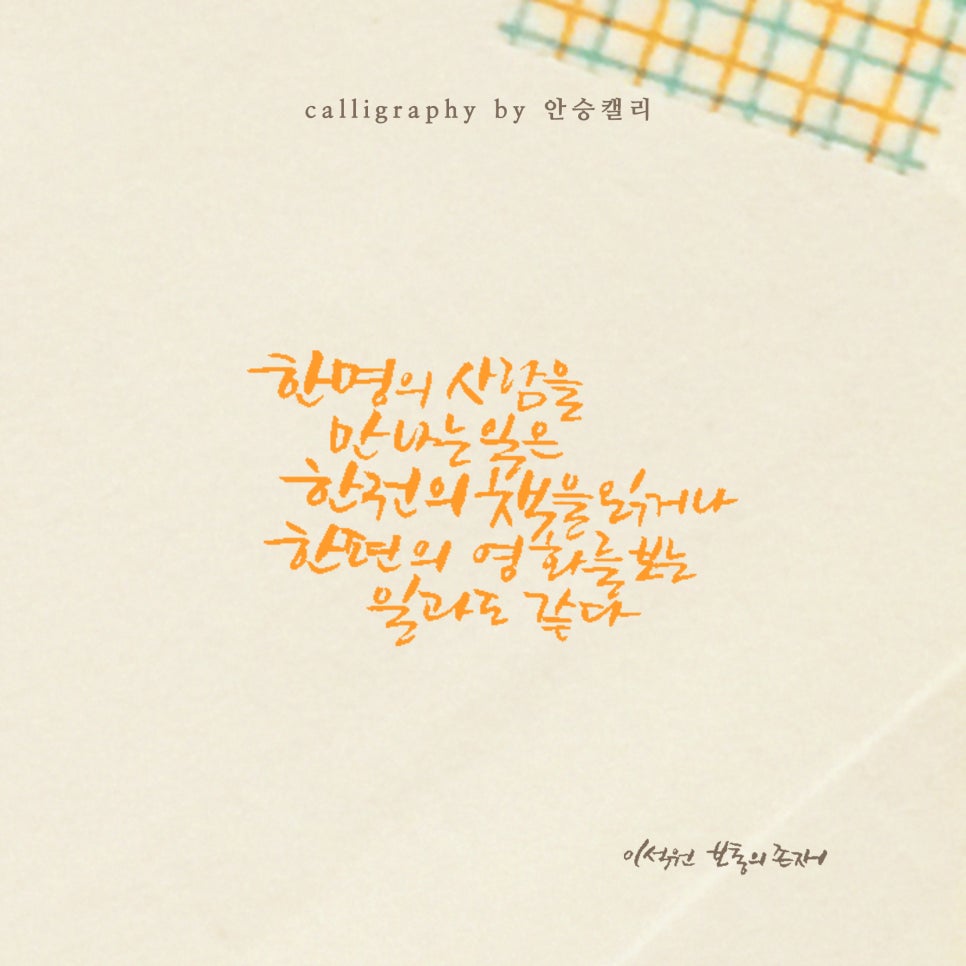 calligraphy by 안승캘리
한명의 사람을
만나는 일은
한권의 책을 읽거나
한편의 영화를 보는
일과도 같다
이석원 보통의 존재